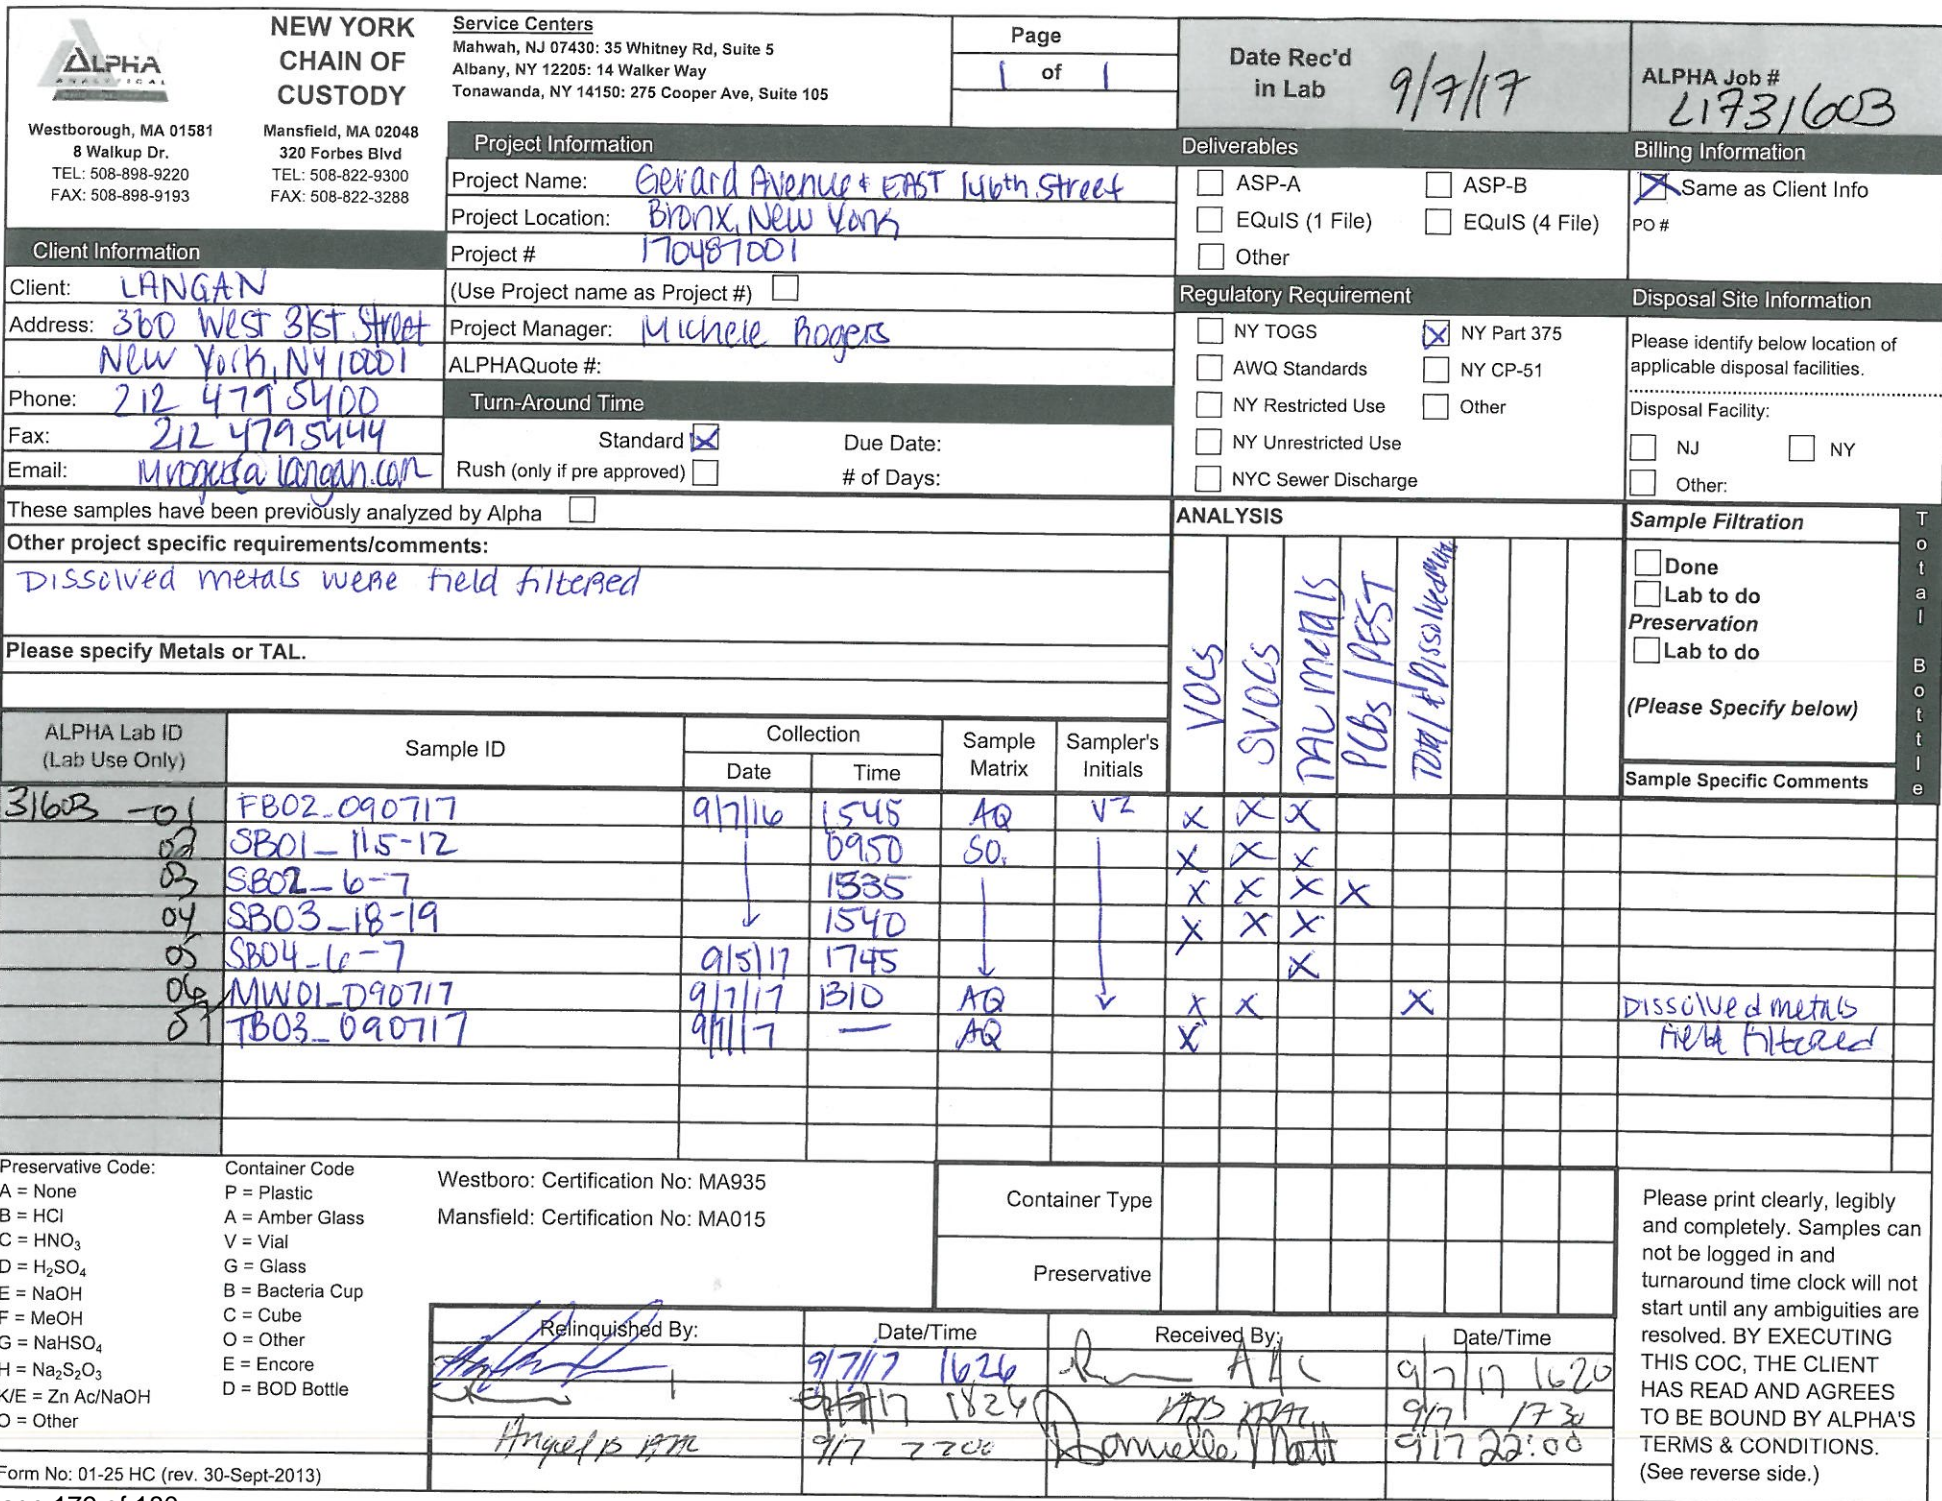 ALPHA
ANALYTICAL
NEW YORK
CHAIN OF
CUSTODY
Westborough, MA 01581
8 Walkup Dr.
TEL: 508-898-9220
FAX: 508-898-9193
Mansfield, MA 02048
320 Forbes Blvd
TEL: 508-822-9300
FAX: 508-822-3288
Service Centers
Mahwah, NJ 07430: 35 Whitney Rd, Suite 5
Albany, NY 12205: 14 Walker Way
Tonawanda, NY 14150: 275 Cooper Ave, Suite 105
Page
1 of 1
Date Rec'd
in Lab
9/7/17
ALPHA Job #
L1731603
Project Information
Project Name: Gerard Avenue & EAST 146th Street
Project Location: Bronx, New York
Project # 170487001
(Use Project name as Project #)
Project Manager: Michele Rogers
ALPHAQuote #:
Client Information
Client: LANGAN
Address: 360 West 31st Street
New York, NY 10001
Phone: 212 479 5400
Fax: 212 479 5444
Email: langan.com
Turn-Around Time
Standard X Due Date:
Rush (only if pre approved) # of Days:
Deliverables
ASP-A ASP-B
EQuIS (1 File) EQuIS (4 File)
Other
Regulatory Requirement
NY TOGS X NY Part 375
AWQ Standards NY CP-51
NY Restricted Use Other
NY Unrestricted Use
NYC Sewer Discharge
Billing Information
X Same as Client Info
PO #
Disposal Site Information
Please identify below location of
applicable disposal facilities.
Disposal Facility:
NJ NY
Other:
These samples have been previously analyzed by Alpha
Other project specific requirements/comments:
Dissolved metals were field filtered
Please specify Metals or TAL.
ANALYSIS
VOCs
SVOCs
TAL metals
PCBs / PEST
Total & Dissolved
Sample Filtration
Done
Lab to do
Preservation
Lab to do
(Please Specify below)
Total Bottle
ALPHA Lab ID
(Lab Use Only)
Sample ID
Collection
Date Time
Sample
Matrix
Sampler's
Initials
Sample Specific Comments
31603 -01 FB02_090717 9/7/16 1545 AQ VZ X X X
02 SB01_11.5-12 0950 SO. X X X
03 SB02_6-7 1335 X X X X
04 SB03_18-19 1540 X X X
05 SB04_6-7 9/5/17 1745 X
06 MW01_090717 9/7/17 1310 AQ X X X Dissolved metals
07 TB03_090717 9/7/17 — AQ X Field filtered
Preservative Code:
A = None
B = HCl
C = HNO3
D = H2SO4
E = NaOH
F = MeOH
G = NaHSO4
H = Na2S2O3
K/E = Zn Ac/NaOH
O = Other
Container Code
P = Plastic
A = Amber Glass
V = Vial
G = Glass
B = Bacteria Cup
C = Cube
O = Other
E = Encore
D = BOD Bottle
Westboro: Certification No: MA935
Mansfield: Certification No: MA015
Container Type
Preservative
Relinquished By: Date/Time Received By: Date/Time
9/7/17 1626 9/7/17 1620
9/7/17 1826 9/7 1730
9/7 2200 Danielle 9/7 22:00
Please print clearly, legibly
and completely. Samples can
not be logged in and
turnaround time clock will not
start until any ambiguities are
resolved. BY EXECUTING
THIS COC, THE CLIENT
HAS READ AND AGREES
TO BE BOUND BY ALPHA'S
TERMS & CONDITIONS.
(See reverse side.)
Form No: 01-25 HC (rev. 30-Sept-2013)